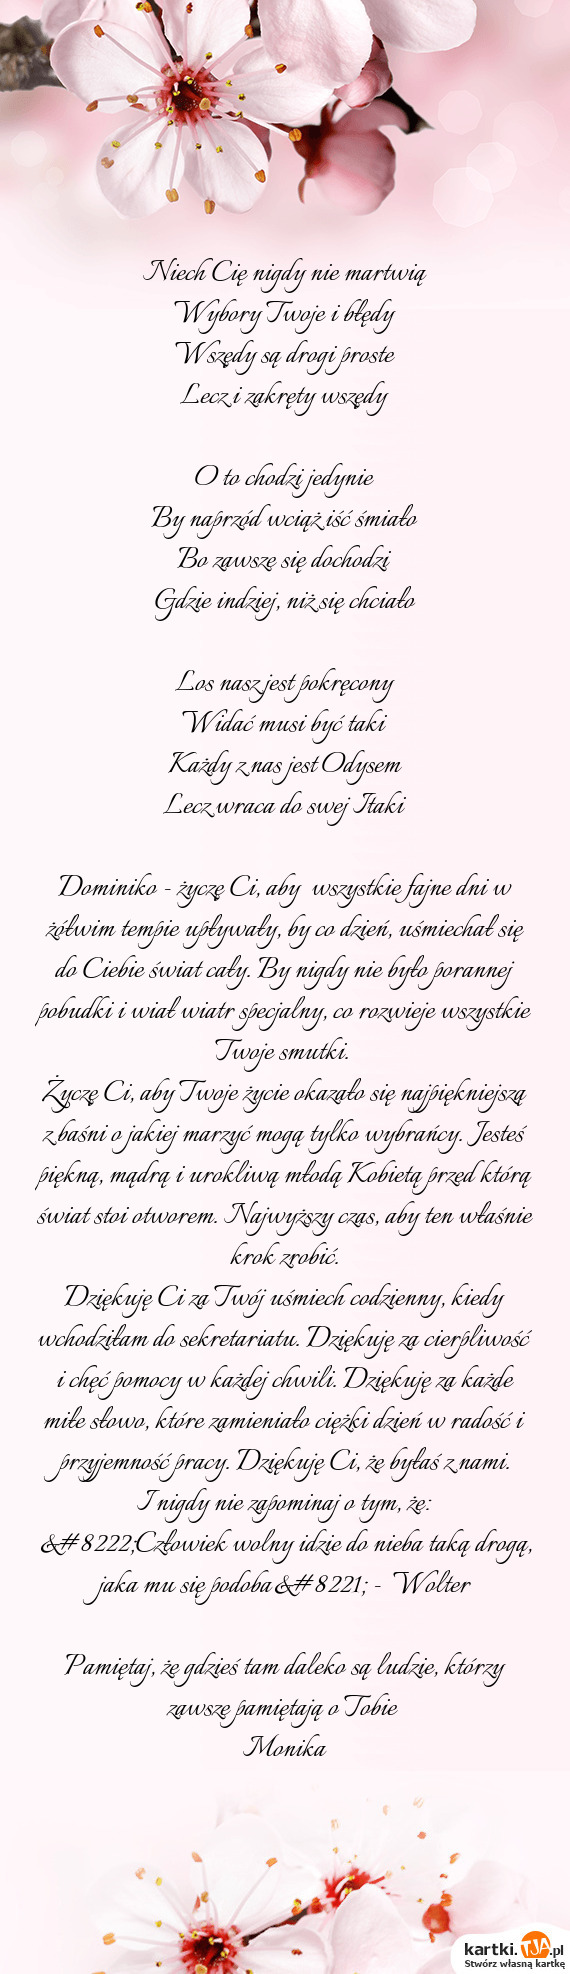 Niech Cię nigdy nie martwią
Wybory Twoje i błędy
Wszędy są drogi proste
Lecz i zakręty wszędy

O to chodzi jedynie
By naprzód wciąż iść śmiało
Bo zawsze się dochodzi
Gdzie indziej, niż się chciało

Los nasz jest pokręcony
Widać musi być taki
Każdy z nas jest Odysem
Lecz wraca do swej Itaki

Dominiko - życzę Ci, aby  wszystkie fajne dni w
żółwim tempie upływały, by co dzień, uśmiechał się
do Ciebie świat cały. By nigdy nie było porannej
pobudki i wiał wiatr specjalny, co rozwieje wszystkie
Twoje smutki.
Życzę Ci, aby Twoje życie okazało się najpiękniejszą
z baśni o jakiej marzyć mogą tylko wybrańcy. Jesteś
piękną, mądrą i urokliwą młodą Kobietą przed którą
świat stoi otworem. Najwyższy czas, aby ten właśnie
krok zrobić.
Dziękuję Ci za Twój uśmiech codzienny, kiedy
wchodziłam do sekretariatu. Dziękuję za cierpliwość
i chęć pomocy w każdej chwili. Dziękuję za każde
miłe słowo, które zamieniało ciężki dzień w radość i
przyjemność pracy. Dziękuję Ci, że byłaś z nami.
I nigdy nie zapominaj o tym, że:
&#8222;Człowiek wolny idzie do nieba taką drogą,
jaka mu się podoba&#8221; -  Wolter

Pamiętaj, że gdzieś tam daleko są ludzie, którzy
zawsze pamiętają o Tobie
Monika
kartki.TJA.pl
Stwórz własną kartkę